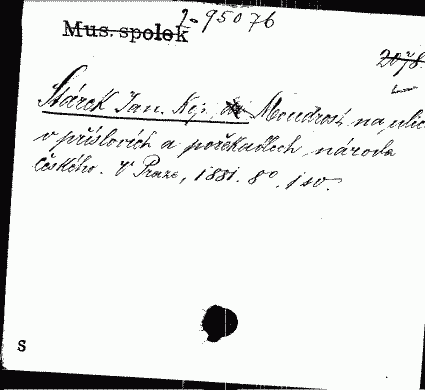 2-95076
Mus. spolek
2078.
Stárek Jan. Moudrost na ulici
v příslovích a pořekadlech národa
českého. V Praze, 1881. 8º. 1 sv.
S